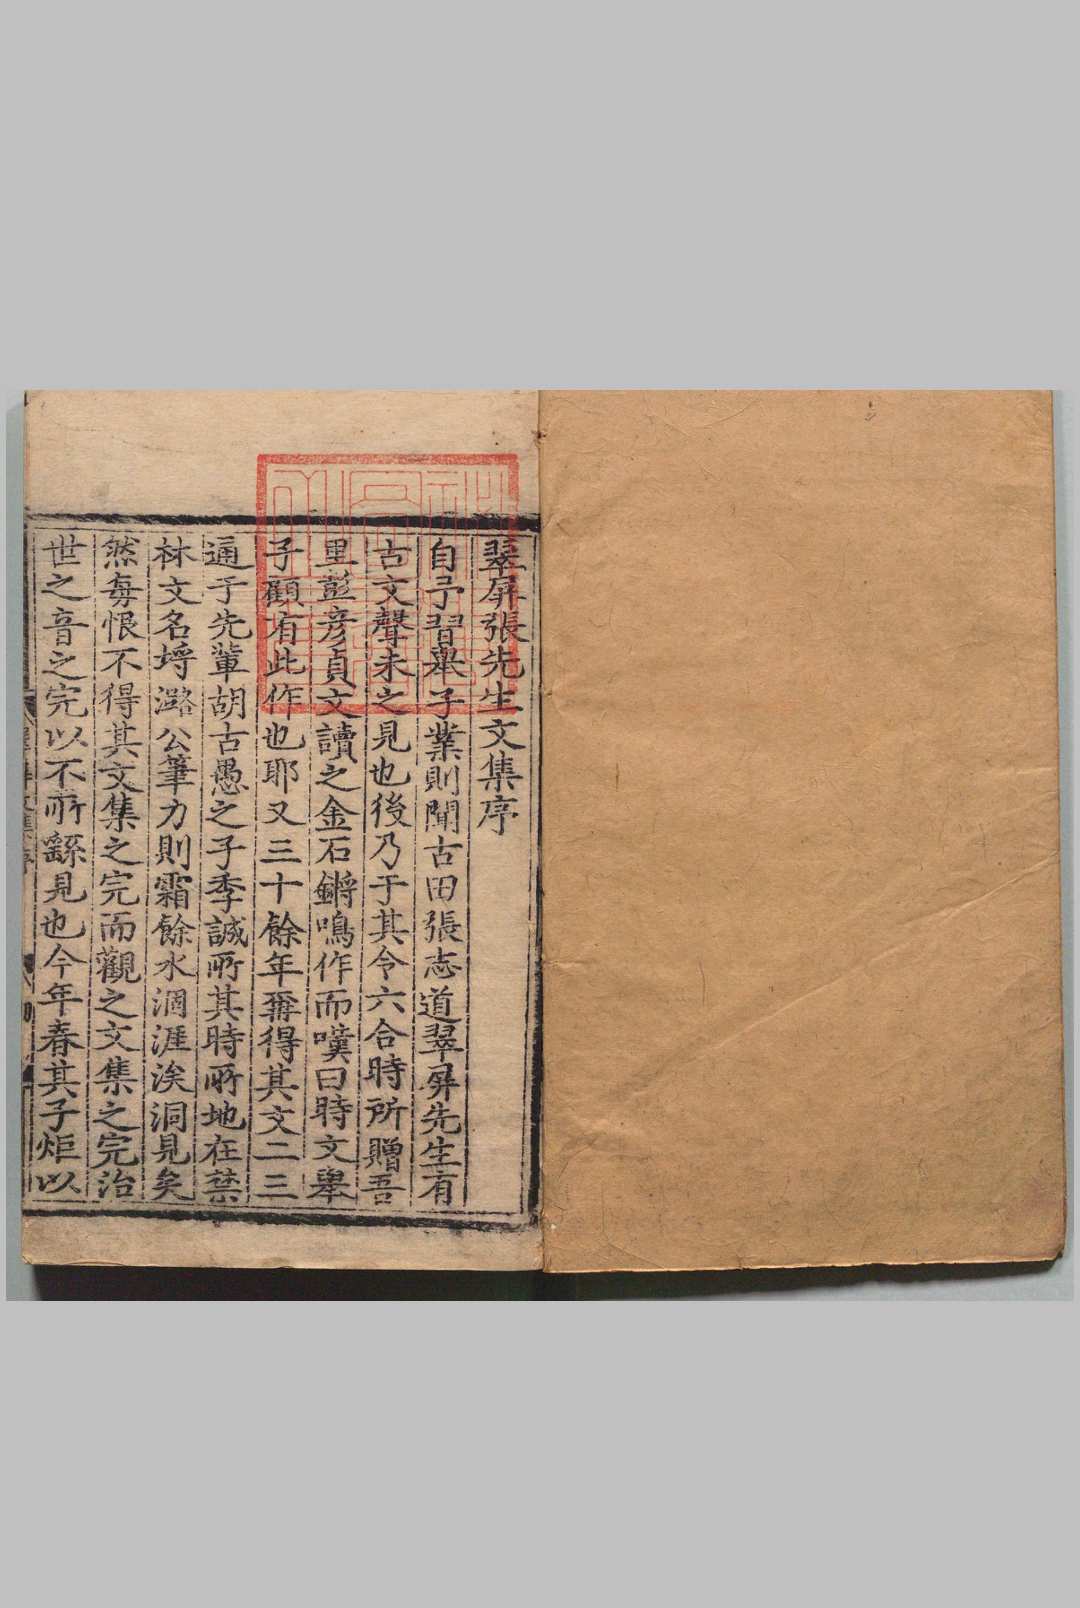 翠屏張先生文集序
自予習舉子業則聞古田張志道翠屏先生有
古文聲未之見也後乃于其令六合時所贈吾
里彭彦貞文讀之金石鏘鳴作而嘆曰時文舉
子顧有此作也耶又三十餘年再得其文二三
通于先軰胡古愚之子季誠所其時所地在禁
林文名埒潞公筆力則霜餘水涸涯涘洞見矣
然每恨不得其文集之完而觀之文集之完治
世之音之完以不所繇見也今年春其子炬以